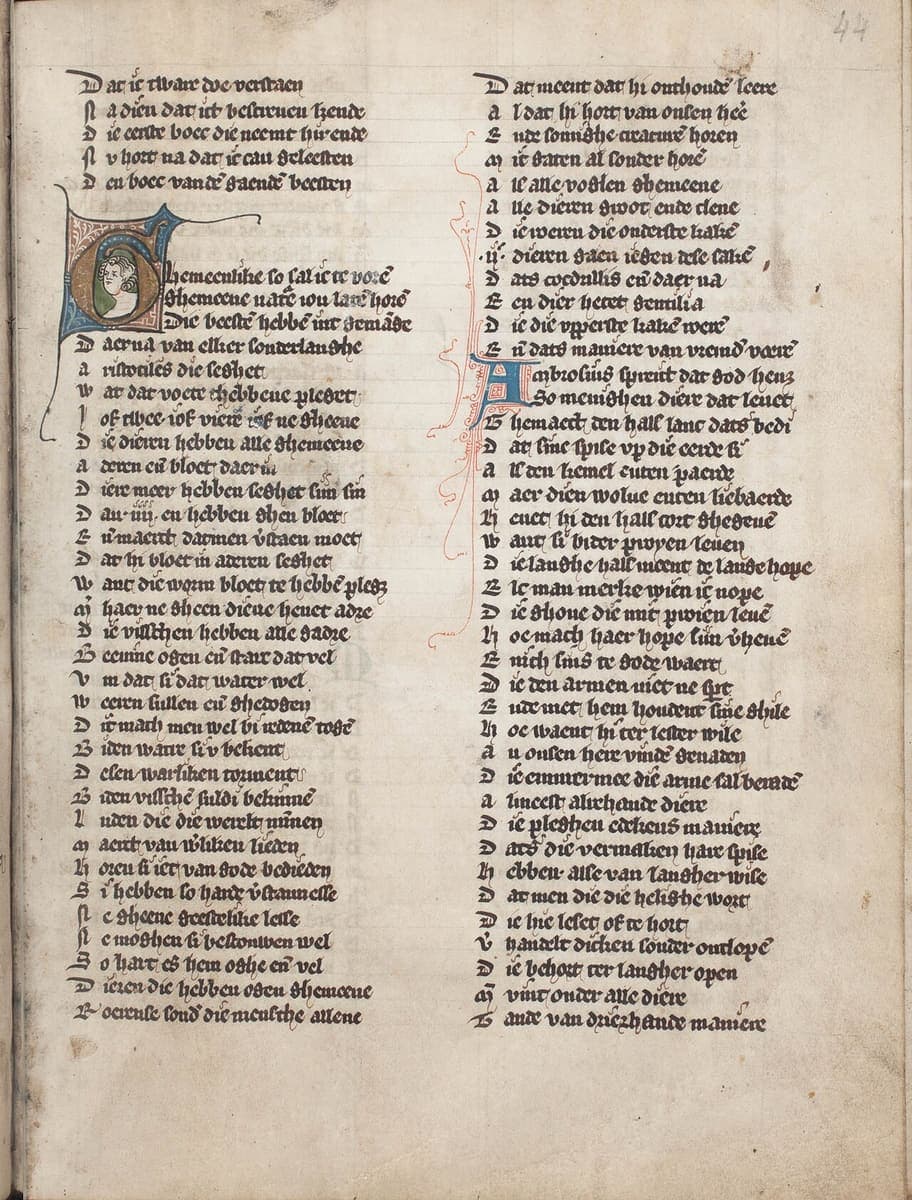 44
D at ic tware doe verstaen
N a dien dat ict bescreven vende
D ie eerste boec die neemt hir ende
N v hort na dat ic can geleesten
D en boec van dē gaende beesten
Ghemeenlike so sal ic te vorē
Ghemeene natē iou latē horē
Die beestē hebbē int gemāge
D aer na van elker sonderlanghe
A ristotiles die seghet
W at dat voete thebbene pleget
I of twee iof viere iof ne gheene
D ie dieren hebben alle ghemeene
A deren eñ bloet daer in
D iere meer hebben seghet sijn sin
D an .iiij. en hebben ghen bloet
E ñ maerct datmen vstaen moet
D at hi bloet in aderen seghet
W ant die worm bloet te hebbē pleg
M aer ne gheen diene hevet adre
D ie visschen hebben alle gadre
G eenne ogen eñ starc dat vel
V m dat si dat water wel
W eeren sullen eñ ghedogen
D it mach men wel bi redenē togē
B iden watre si v bekent
D esen warliken torment
B iden visschē suldi bekinnē
L uden die die werelt minnen
M aerct van wliken lieden
H oren si iet van gode bedieden
S i hebben so harde vstannesse
N e gheene geestelike lesse
N e moghen si bescouwen wel
S o hart es hem oghe eñ vel
D ieren die hebben ogen ghemeene
R oerense sond die mensche allene
D at meent dat hi onthoudē leere
A l dat hi hort van onsen heē
E nde somighe creaturē horen
M it gaten al sonder horē
A ls alle voglen ghemeene
A lle dieren groot ende clene
D ie weren die onderste kakē
.ij. dieren gaen iegen dese sakē
D ats cocodrillis eñ daer na
E en dier hetet gentilia
D ie die vpperste kaken werē
E ñ dats maniere van vremd veerē
Ambrosius spreict dat god henz
So menighen diere dat levet
G hemaect den hals lanc dats bedi
D at sine spise vp die eerde si
A ls den kemel enten paerde
M aer dien wolve enten liebaerde
H evet hi den hals cort ghegevē
W ant si bider proyen leven
D ie langhe hals meent de lange hope
E lc man merke wien ic nope
D ie ghone die mit proien levē
H oe mach haer hope sijn vhevē
E nich sins te gode waert
D ie den armen niet ne spt
E nde met hem houdent sine ghile
H oe waent hi ter lester wile
A n onsen here vindē genaden
D ie emmermee die arme sal beradē
A lmeest alrehande diere
D ie pleghen edekens maniere
D ats die vermalen hare spise
H ebben alse van langher wise
D at men die die helighe wort
D ie hie leset of te hort
V handelt dicken sonder ontlopē
D ie behort ter langher open
M vint onder alle diere
T ande van drierhande maniere